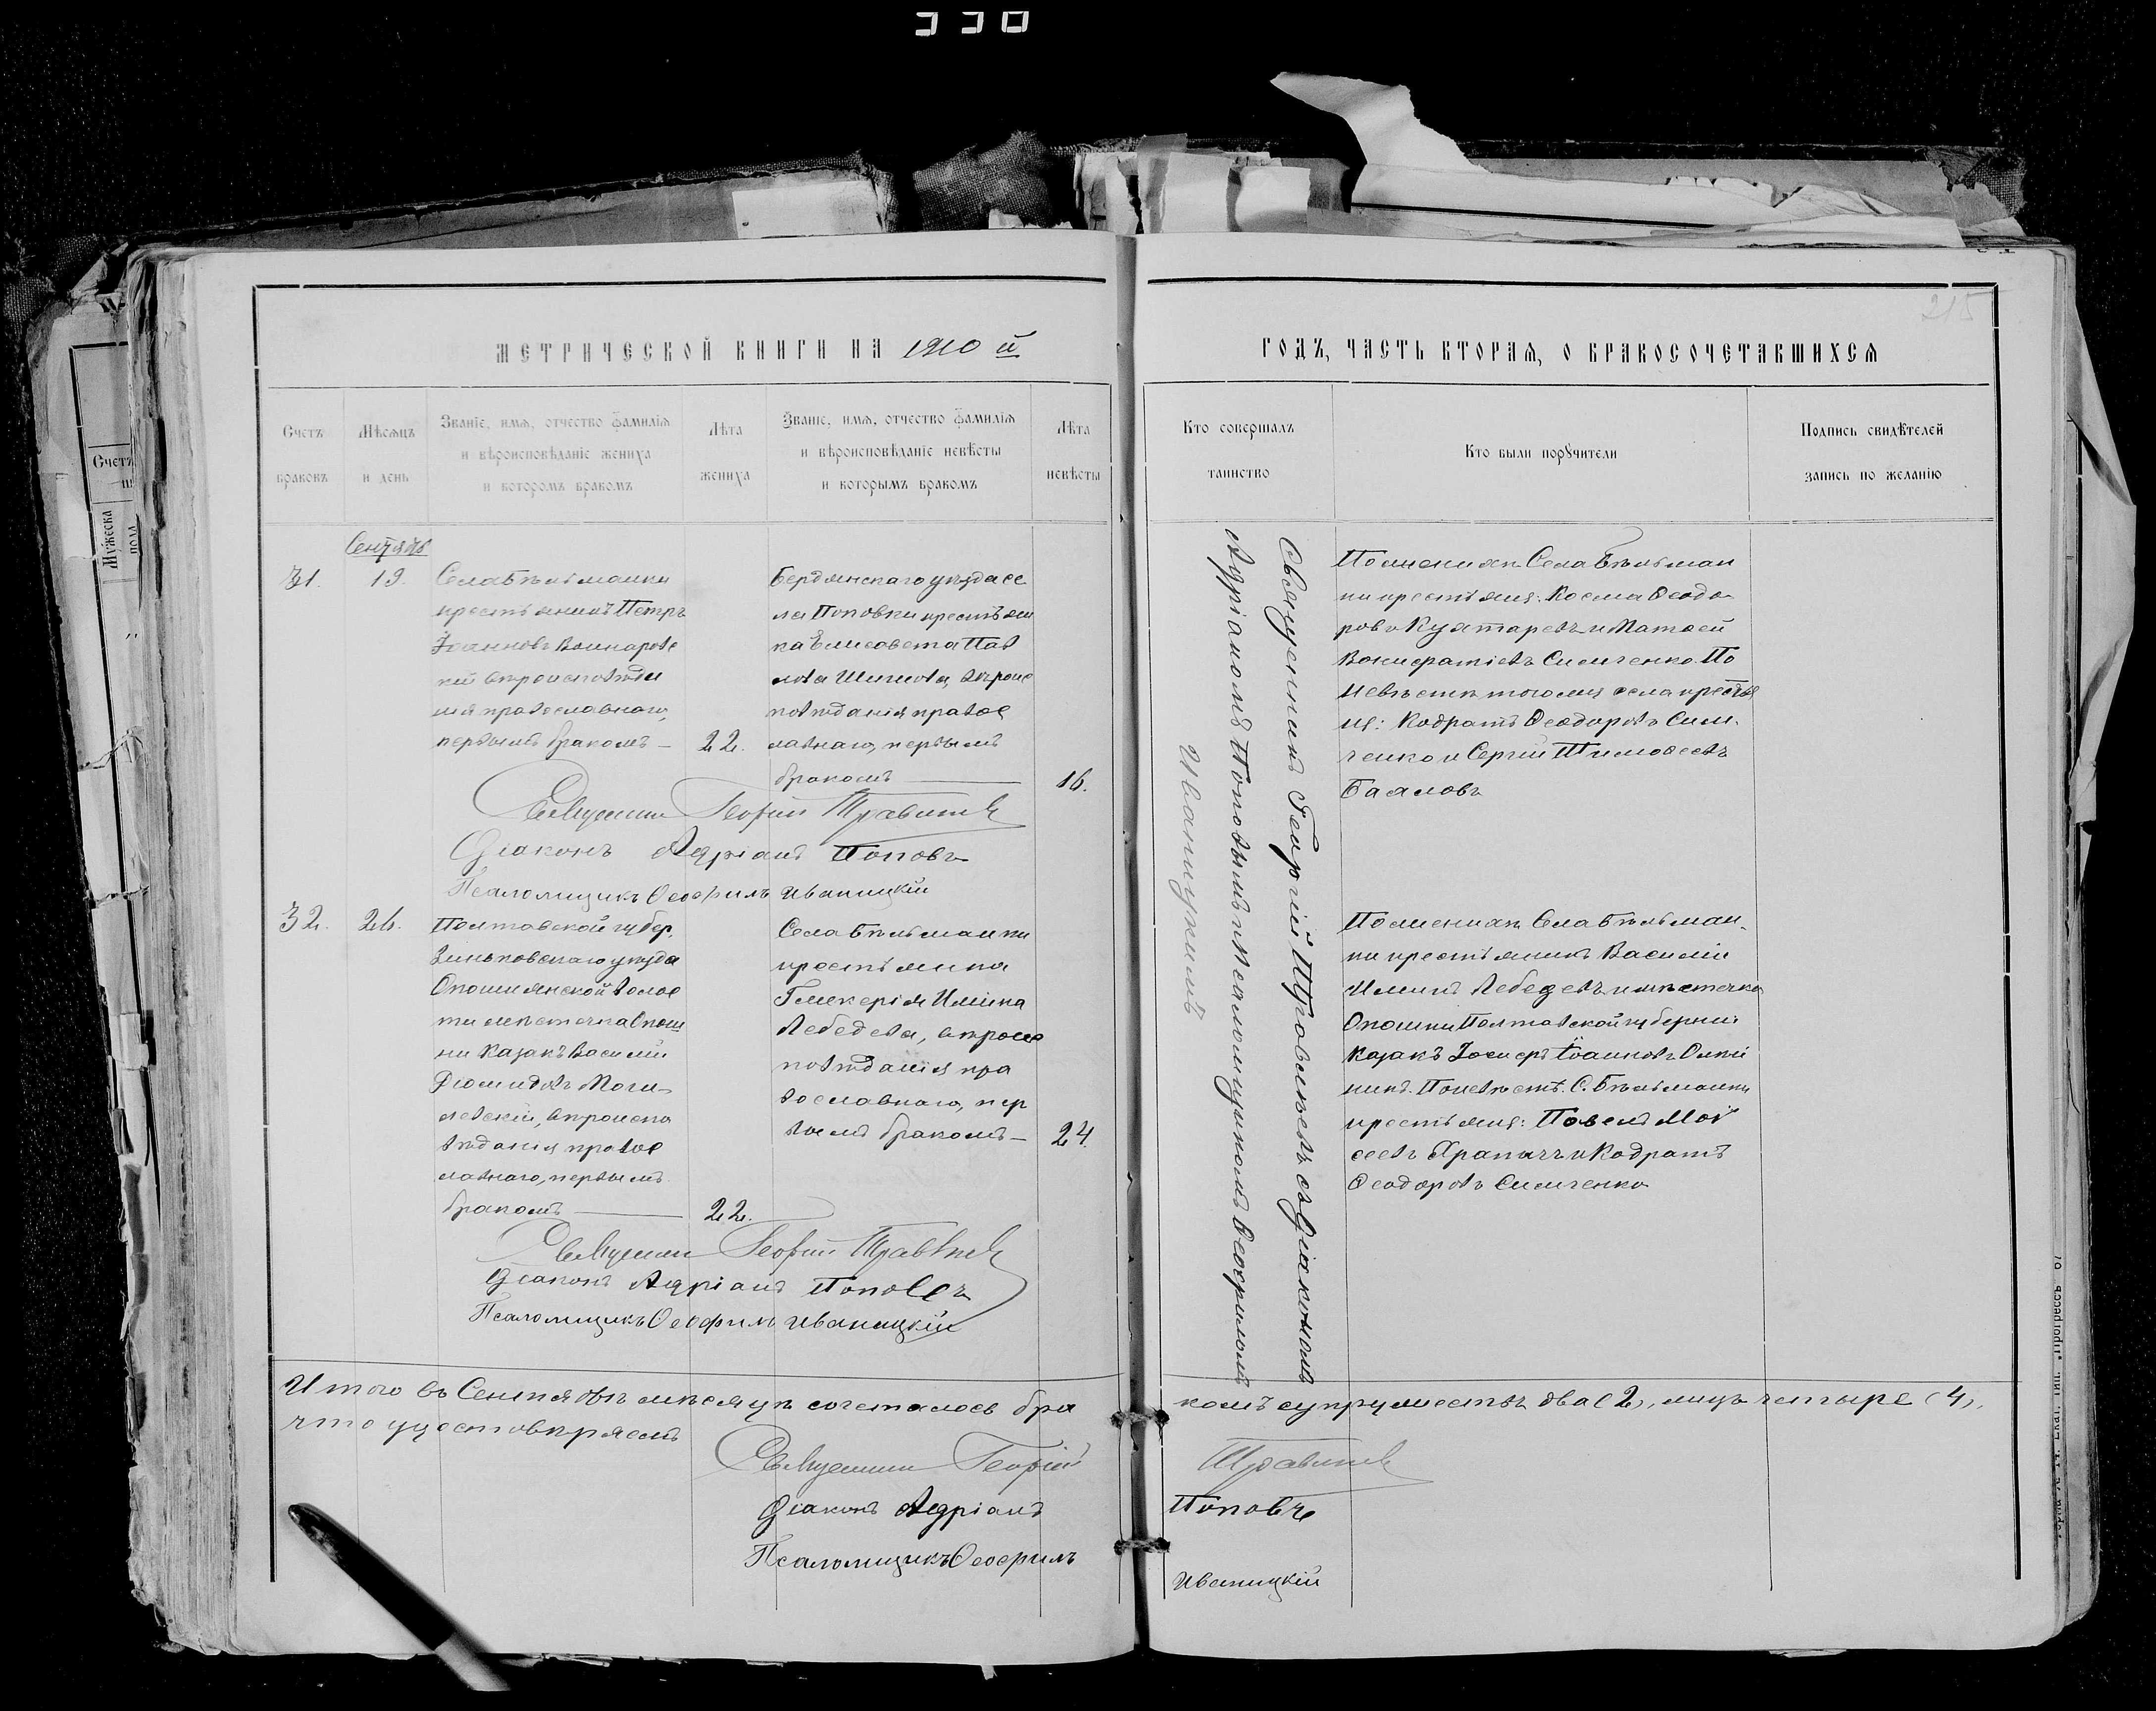 330
215
МЕТРИЧЕСКОЙ КНИГИ НА 1910 й
ГОДЪ, ЧАСТЬ ВТОРАЯ, О БРАКОСОЧЕТАВШИХСЯ
Счетъ
браковъ
Мѣсяцъ
и день
Званіе, имя, отчество фамилія
и вѣроисповѣданіе жениха
и которомъ бракомъ
Лѣта
жениха
Званіе, имя, отчество фамилія
и вѣроисповѣданіе невѣсты
и которымъ бракомъ
Лѣта
невѣсты
Кто совершалъ
таинство
Кто были поручители
Подпись свидѣтелей
запись по желанію
Счетъ
Мужеска
пол
Сентябь
31.
19.
Села Бѣльманки
крестьянинъ Петръ
Іоанновъ
кій вѣроисповѣда
нія православнаго,
первымъ бракомъ —
22.
Бердянскаго уѣзда се
ла Поповки крестьян
ка Елисавета Пав
лова вѣроис
повѣданія правос
лавнаго, первымъ
бракомъ —
16.
Священникъ Георгій Правинѣвъ
Діаконъ Адріанъ Поповъ
Псаломщикъ Ѳеофилъ Иваницкій
Священникъ Георгій съ Діакономъ
Адріаномъ Поповымъ и Псаломщикомъ Ѳеофиломъ
Иваницкимъ
По женихѣ Села Бѣльман
ки крестьяня: Косма Ѳеодо
ровъ и Матѳей
Симченко. По
Невѣстѣ тогоже села крестья
ня: Кодратъ Ѳеодоровъ Сим
ченко и Сергій Тимоѳеевъ
Баяловъ
32.
26.
Полтавской губер.
Зиньковскаго уѣзда
Опошнянской волос
ти мѣстечка Опош
ни Казакъ Василій
Діомидовъ Моги
левскій, вѣроиспо
вѣданія правос
лавнаго, первымъ
бракомъ —
22.
Села Бѣльманки
крестьянка
Гликерія Иліина
Лебедева, вѣроис
повѣданія пра
вославнаго, пер
вымъ бракомъ —
24.
По женихѣ Села Бѣльман
ки крестьянинъ Василій
Илиинъ Лебедевъ и мѣстечка
Опошни Полтавской губерніи
Казакъ Іосифъ Іоанновъ
По невѣстѣ: С. Бѣльманки
крестьяня: Павелъ Мои
сеевъ и Кодратъ
Ѳеодоровъ Симченко
Священникъ Георгій
Діаконъ Адріанъ Поповъ
Псаломщикъ Ѳеофилъ Иваницкій
Итого въ Сентябрѣ мѣсяцѣ сочеталось бра
комъ супружествъ два (2), лицъ четыре (4),
что удостовѣряемъ
Священникъ Георгій
Діаконъ Адріанъ Поповъ
Псаломщикъ Ѳеофилъ Иваницкій